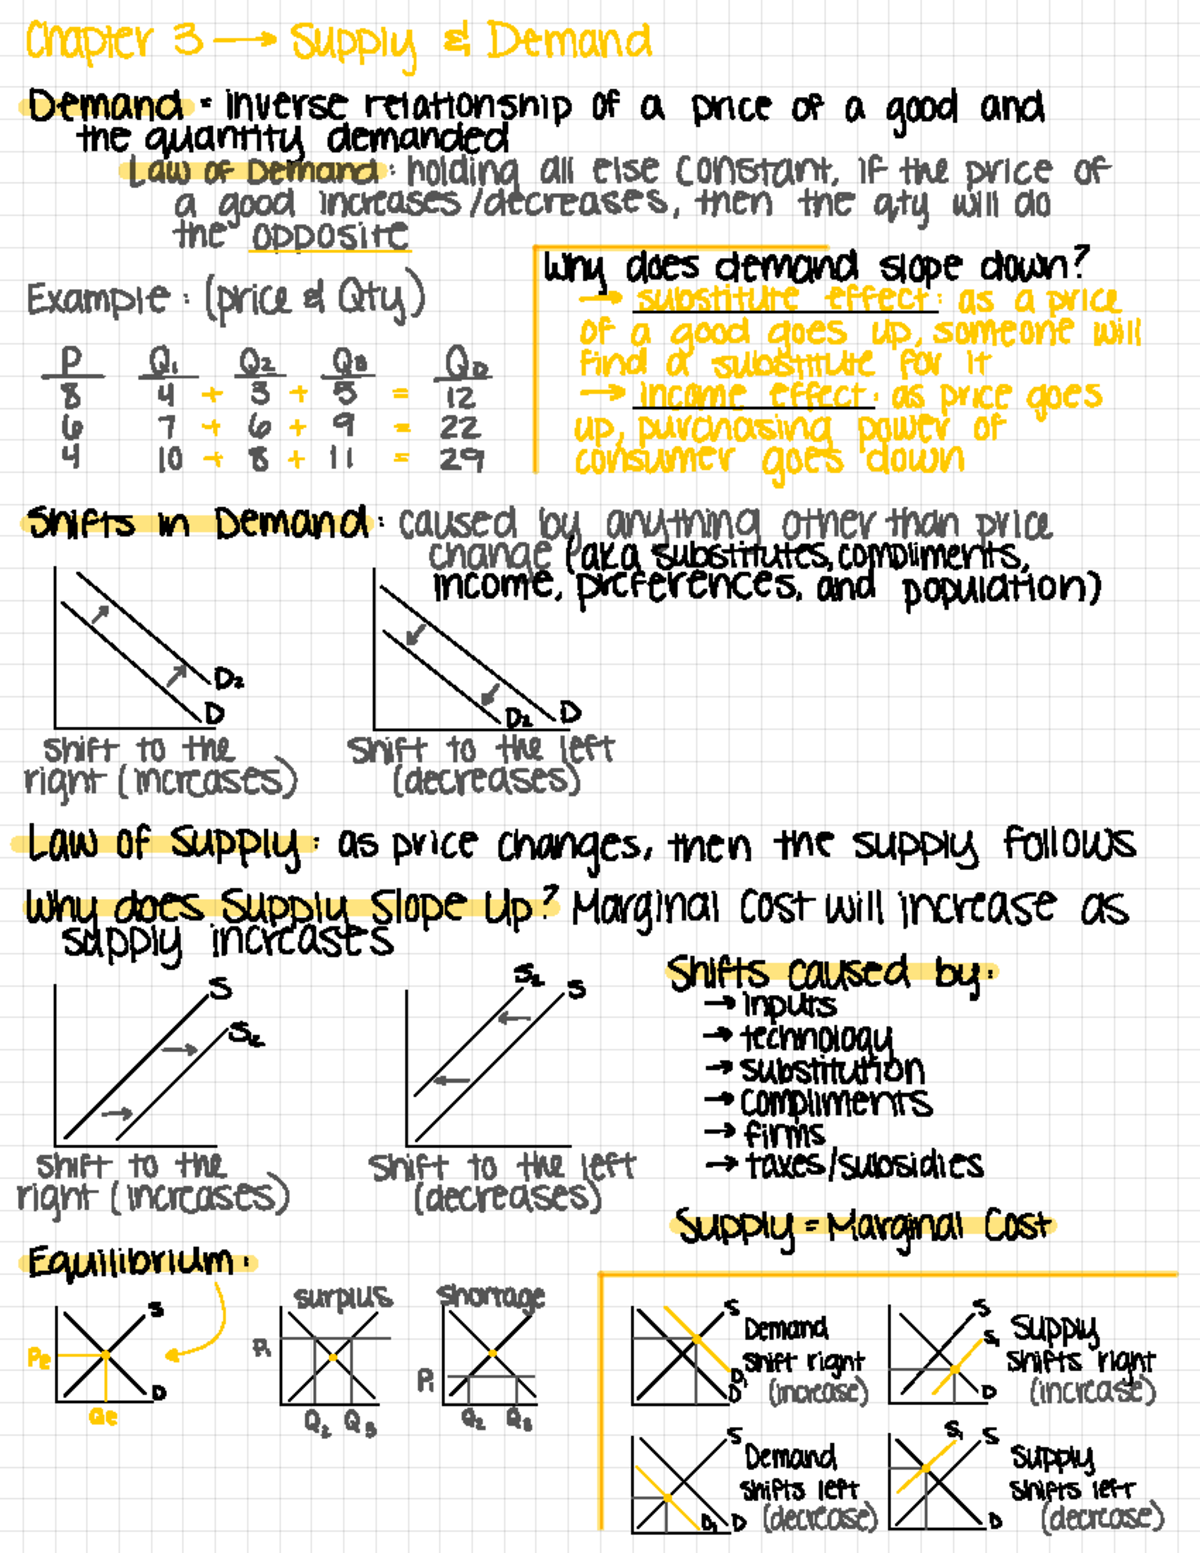 Chapter 3 → Supply & Demand
Demand = inverse relationship of a price of a good and
the quantity demanded
Law of Demand: holding all else constant, if the price of
a good increases/decreases, then the qty will do
the opposite
Example: (price & Qty)
P Q₁ Q₂ Q₃ Q_D
8 4 + 3 + 5 = 12
6 7 + 6 + 9 = 22
4 10 + 8 + 11 = 29
Why does demand slope down?
→ substitute effect: as a price
of a good goes up, someone will
find a substitute for it
→ income effect: as price goes
up, purchasing power of
consumer goes down
Shifts in Demand: caused by anything other than price
change (aka substitutes, compliments,
income, preferences, and population)
D₂
D
Shift to the
right (increases)
D₂ D
Shift to the left
(decreases)
Law of Supply: as price changes, then the supply follows
Why does Supply Slope Up? Marginal Cost will increase as
supply increases
S
S₂
Shift to the
right (increases)
S₂ S
Shift to the left
(decreases)
Shifts caused by:
→ inputs
→ technology
→ substitution
→ compliments
→ firms
→ taxes/subsidies
Supply = Marginal Cost
Equilibrium:
S
Pe
D
Qe
surplus
P₁
Q₂ Q₃
shortage
P₁
Q₂ Q₃
S
Demand
shift right
(increase)
D₁
D
S
S₁
Supply
shifts right
(increase)
D
S
Demand
shifts left
(decrease)
D₁ D
S₁ S
Supply
shifts left
(decrease)
D